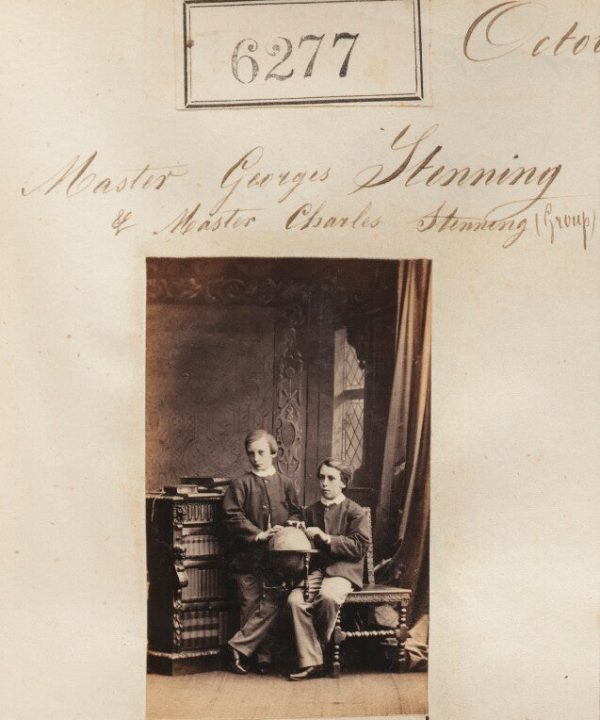 6277
Master Georges Stenning
& Master Charles Stenning (Group)